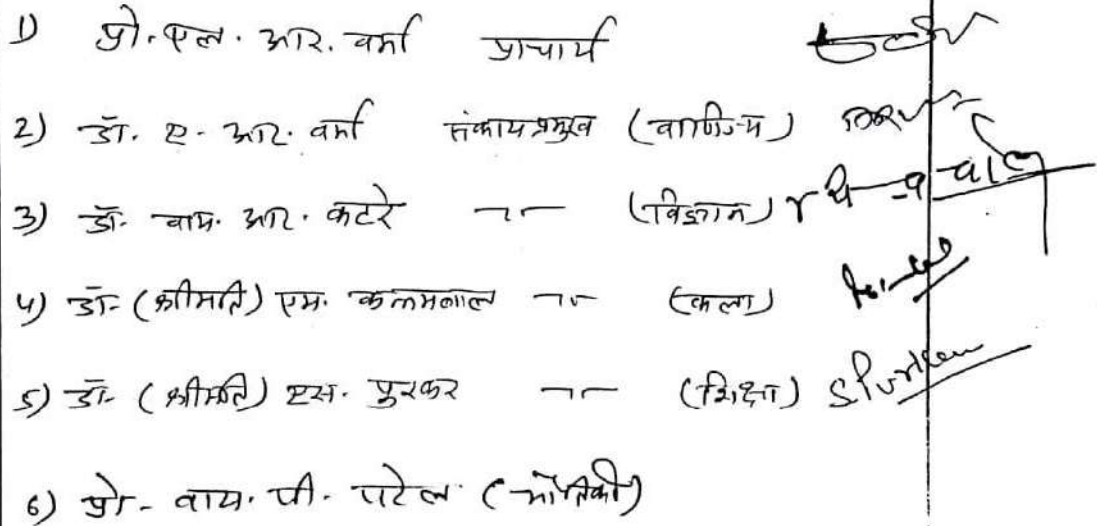 1) प्रो. एल. आर. वर्मा प्राचार्य
2) डॉ. ए. आर. वर्मा संकाय प्रमुख (वाणिज्य)
3) डॉ. वाय. आर. कटरे -"- (विज्ञान)
4) डॉ. (श्रीमति) एम. -"- (कला)
5) डॉ. (श्रीमति) एस. पुरकर -"- (शिक्षा)
6) प्रो. वाय. पी. पटेल (भौतिकी)